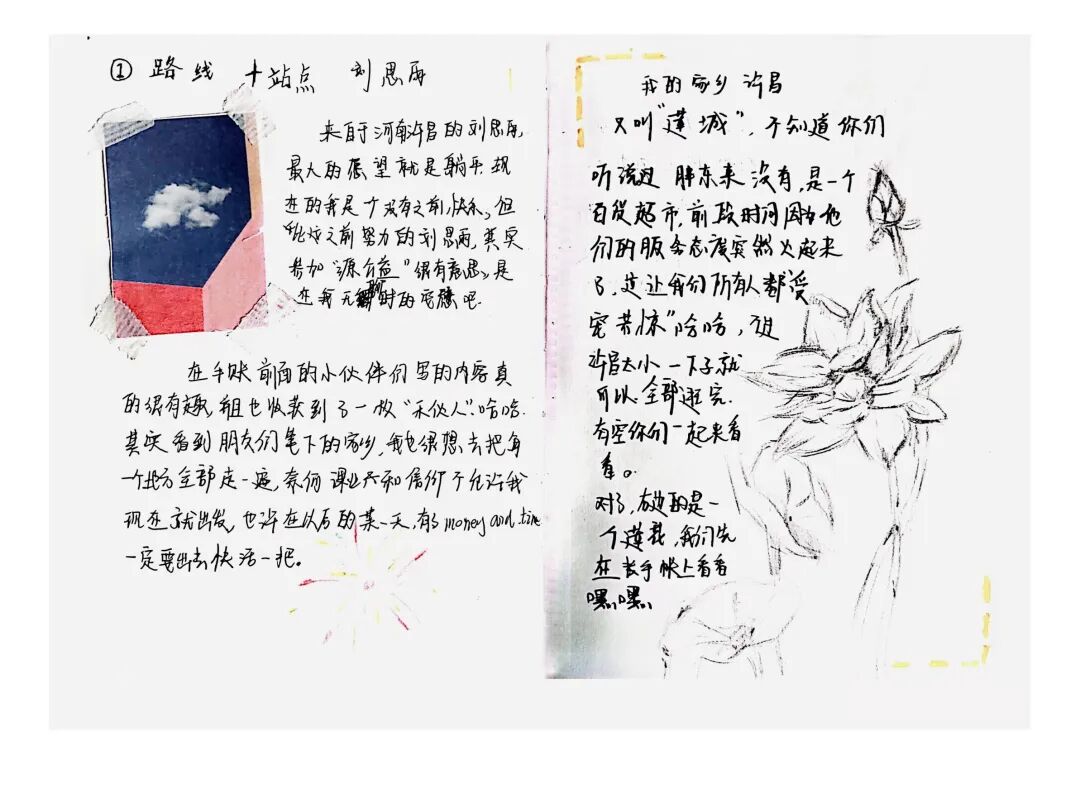 ① 路线 十站点 刘思雨
来自于河南许昌的刘思雨,
最大的愿望就是躺平.现
在的我是个没有之前快乐,但
比之前努力的刘思雨,其实
参加“源公益”很有意思,是
在我无聊时的
在手账前面的小伙伴们写的内容真
的很有趣,我也收获到了一枚“禾伙人”.哈哈.
其实看到朋友们笔下的家乡,我也很想去把每
一个地方全部走一遍,奈何课业不和信价不允许我
现在就出发,也许在以后的某一天,有了money and time
一定要出去快活一把。
我的家乡 许昌
又叫“莲城”,不知道你们
听说过 胖东来 没有,是一个
百货超市,前段时间因为他
们的服务态度突然火起来
了,这让我们所有人都受
宠若惊”哈哈,但
许昌太小 一下子就
可以全部逛完.
有空你们一起来看
看。
对了,右边的是一
个莲花,我们先
在手帐上看看
嘿嘿